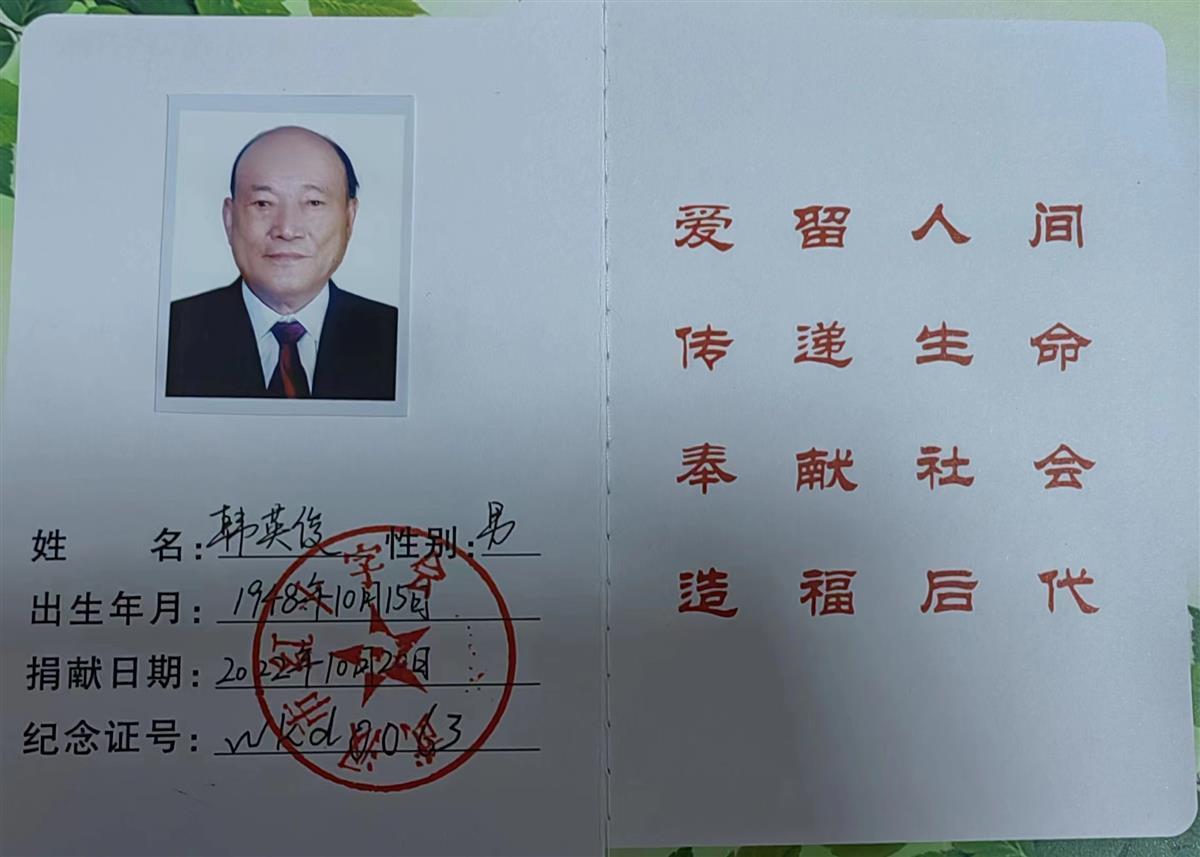 姓名：韩英俊 性别：男
出生年月：1948年10月15日
捐献日期：2022年10月20日
纪念证号：
爱留人间
传递生命
奉献社会
造福后代